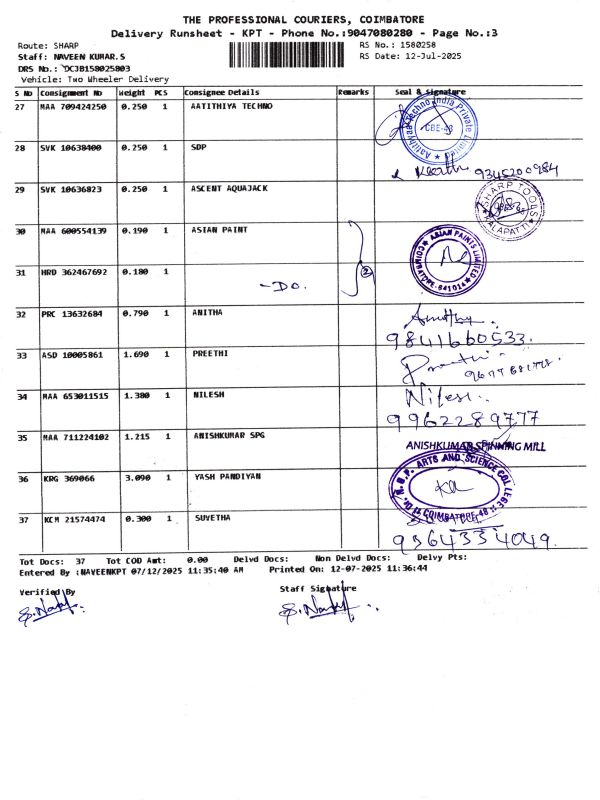 THE PROFESSIONAL COURIERS, COIMBATORE
Delivery Runsheet - KPT - Phone No.:9047080280 - Page No.:3
Route: SHARP RS No.: 1580258
Staff: NAVEEN KUMAR.S RS Date: 12-Jul-2025
DRS No.: DCJB158025803
Vehicle: Two Wheeler Delivery
S No Consignment No Weight PCS Consignee Details Remarks Seal & Signature
27 MAA 709424250 0.250 1 AATITHIYA TECHNO
Aatithyaa Techno India Private Limited CBE-48
28 SVK 10638400 0.250 1 SDP
Keerthi 9345200984
29 SVK 10636823 0.250 1 ASCENT AQUAJACK
SHARP TOOLS KALAPATTI
30 MAA 600554139 0.190 1 ASIAN PAINT
ASIAN PAINTS LIMITED COIMBATORE-641014
31 HRD 362467692 0.180 1 -Do. 2
32 PRC 13632684 0.790 1 ANITHA
9841660533
33 ASD 10005861 1.690 1 PREETHI
Preethi
34 MAA 653011515 1.380 1 NILESH
Nilesh
9962289777
35 MAA 711224102 1.215 1 ANISHKUMAR SPG
ANISHKUMAR SPINNING MILL
36 KRG 369066 3.090 1 YASH PANDIYAN
ARTS AND SCIENCE COLLEGE COIMBATORE-48
37 KCM 21574474 0.300 1 SUVETHA
9364334049
Tot Docs: 37 Tot COD Amt: 0.00 Delvd Docs: Non Delvd Docs: Delvy Pts:
Entered By :NAVEENKPT 07/12/2025 11:35:40 AM Printed On: 12-07-2025 11:36:44
Verified By Staff Signature